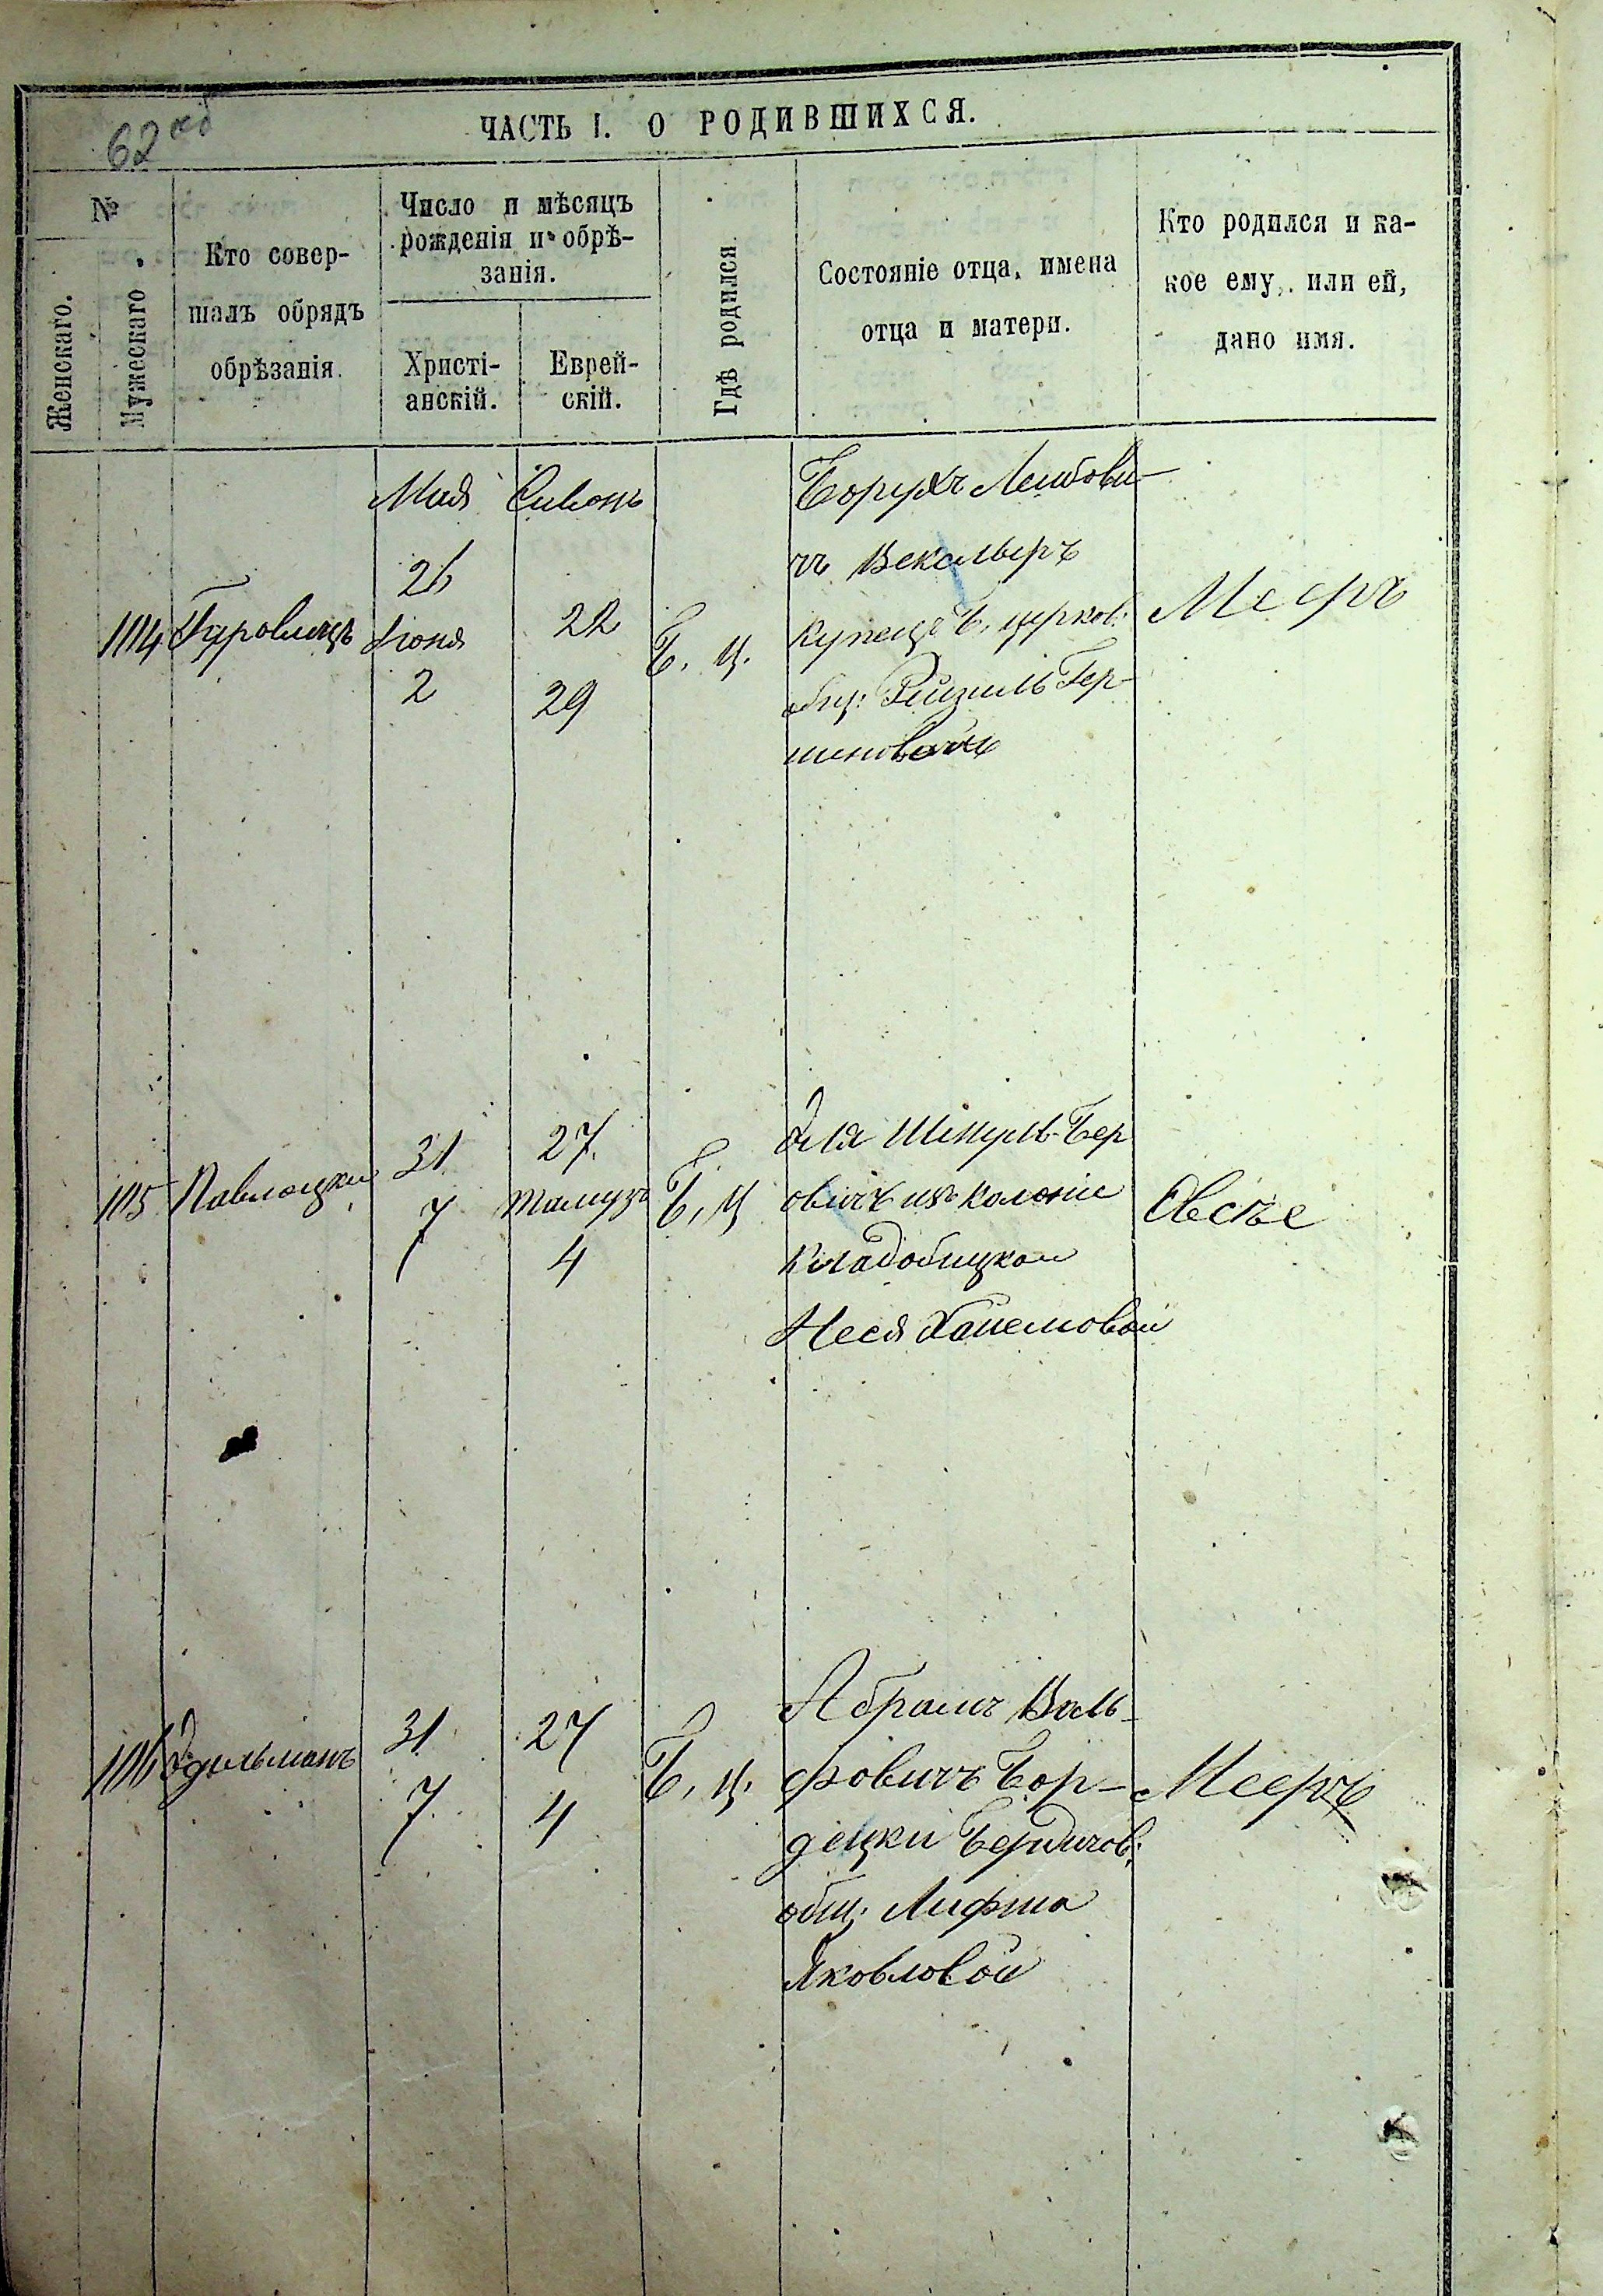 62 об
ЧАСТЬ I. О РОДИВШИХСЯ.
№
Женскаго.
Мужескаго
Кто совер-
шалъ обрядъ
обрѣзанія.
Число и мѣсяцъ
рожденія и обрѣ-
занія.
Христі-
анскій.
Еврей-
скій.
Гдѣ родился
Состояніе отца, имена
отца и матери.
Кто родился и ка-
кое ему, или ей,
дано имя.
Мая Сивонъ
26
22
114 Гуровицъ Іюня
2
29
Б. Ц.
Борухъ Лейбови-
чъ Векслеръ
купецъ Б. церков:
общ: Рейзиль Гер-
шковой
Мееръ
115 Павлоцки
31
7
27
Тамузъ
4
Б. Ц
Эля Шмуль Бер
овичъ изъ колоніи
Неся Хаимовой
Овсѣе
116 Эдельманъ
31
7
27
4
Б. Ц.
Абрамъ Воль-
фовичъ Бор-
децки Бердичов:
общ: Лифша
Яковловой
Мееръ